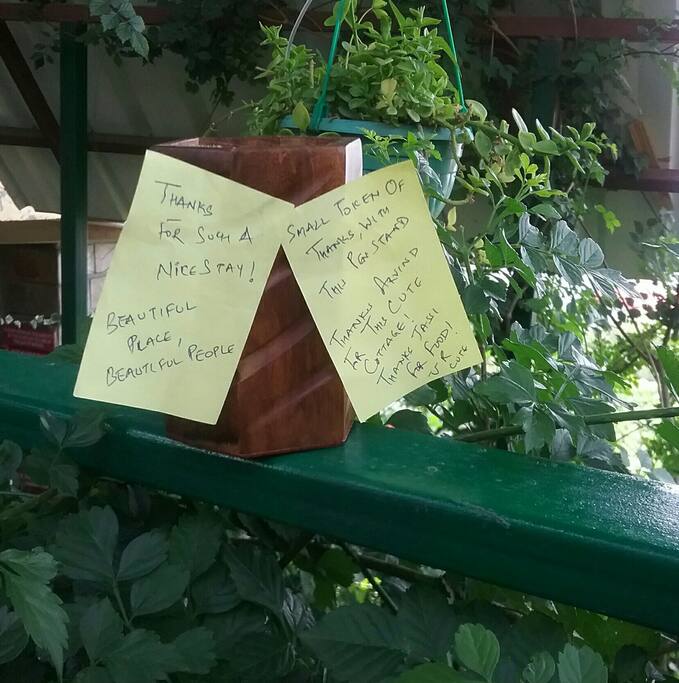 THANKS
FOR SUCH A
NICE STAY!
BEAUTIFUL
PLACE,
BEAUTIFUL PEOPLE
SMALL TOKEN OF
THANKS, WITH
THIS PEN STAND
THANKS ARVIND
FOR THIS CUTE
COTTAGE!
THANKS JASSI
FOR FOOD!
U R CUTE